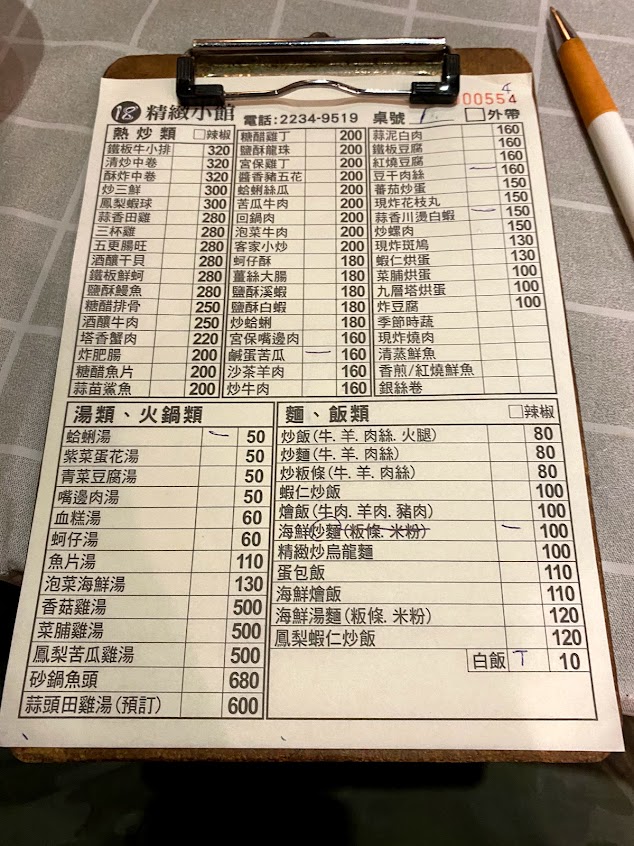 18 精緻小館 電話:2234-9519 桌號 1 □外帶
4
00554
熱炒類 □辣椒
鐵板牛小排 320
清炒中卷 320
酥炸中卷 320
炒三鮮 300
鳳梨蝦球 300
蒜香田雞 280
三杯雞 280
五更腸旺 280
酒釀干貝 280
鐵板鮮蚵 280
鹽酥鰻魚 280
糖醋排骨 250
酒釀牛肉 250
塔香蟹肉 220
炸肥腸 200
糖醋魚片 200
蒜苗鯊魚 200
糖醋雞丁 200
鹽酥龍珠 200
宮保雞丁 200
醬香豬五花 200
蛤蜊絲瓜 200
苦瓜牛肉 200
回鍋肉 200
泡菜牛肉 200
客家小炒 200
蚵仔酥 180
薑絲大腸 180
鹽酥溪蝦 180
鹽酥白蝦 180
炒蛤蜊 180
宮保嘴邊肉 160
鹹蛋苦瓜 一 160
沙茶羊肉 160
炒牛肉 160
蒜泥白肉 160
鐵板豆腐 160
紅燒豆腐 160
豆干肉絲 一 160
蕃茄炒蛋 150
現炸花枝丸 150
蒜香川燙白蝦 一 150
炒螺肉 150
現炸斑鳩 130
蝦仁烘蛋 130
菜脯烘蛋 100
九層塔烘蛋 100
炸豆腐 100
季節時蔬
現炸燒肉
清蒸鮮魚
香煎/紅燒鮮魚
銀絲卷
湯類、火鍋類
蛤蜊湯 一 50
紫菜蛋花湯 50
青菜豆腐湯 50
嘴邊肉湯 50
血糕湯 60
蚵仔湯 60
魚片湯 110
泡菜海鮮湯 130
香菇雞湯 500
菜脯雞湯 500
鳳梨苦瓜雞湯 500
砂鍋魚頭 680
蒜頭田雞湯(預訂) 600
麵、飯類 □辣椒
炒飯(牛.羊.肉絲.火腿) 80
炒麵(牛.羊.肉絲) 80
炒粄條(牛.羊.肉絲) 80
蝦仁炒飯 100
燴飯(牛肉.羊肉.豬肉) 100
海鮮炒麵(粄條.米粉) 一 100
精緻炒烏龍麵 100
蛋包飯 110
海鮮燴飯 110
海鮮湯麵(粄條.米粉) 120
鳳梨蝦仁炒飯 120
白飯 T 10